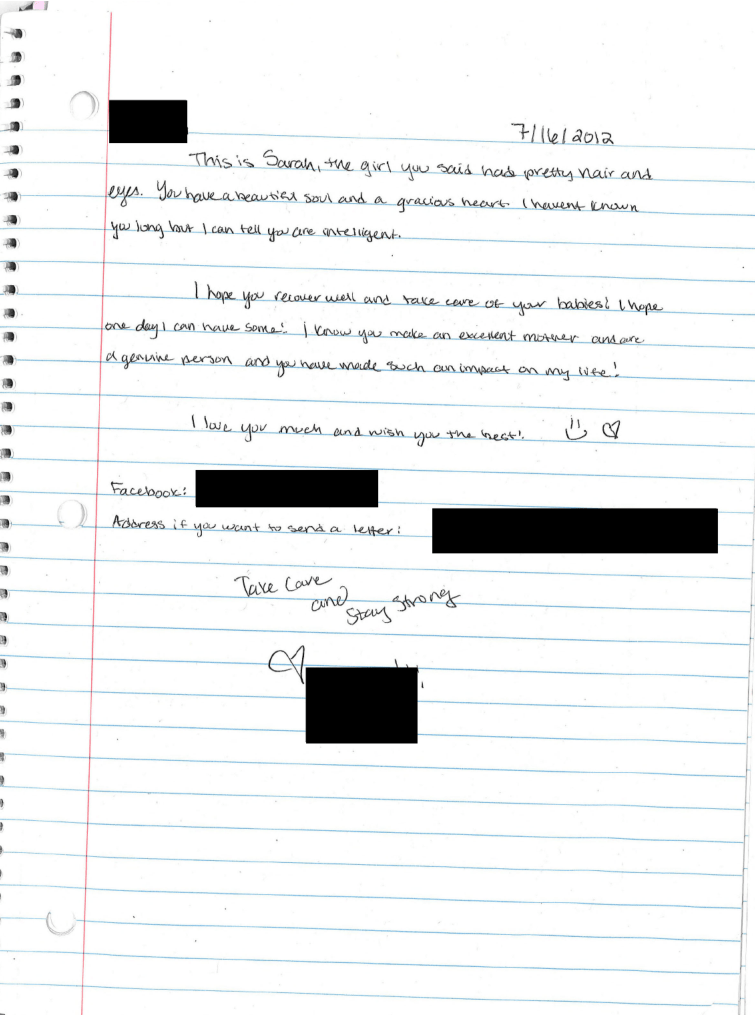 7/16/2012
This is Sarah, the girl you said had pretty hair and
eyes. You have a beautiful soul and a gracious heart. I havent known
you long but I can tell you are intelligent.
I hope you recover well and take care of your babies! I hope
one day I can have some! I know you make an excellent mother and are
a genuine person and you have made such an impact on my life!
I love you much and wish you the best!
Facebook:
Address if you want to send a letter:
Take Care
and
Stay Strong